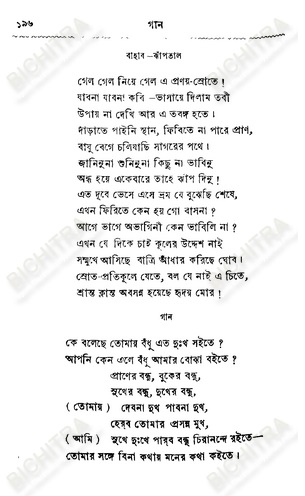 ১৯৬
গান
বাহার—ঝাঁপতাল
গেল গেল নিয়ে গেল এ প্রণয়-স্রোতে !
যাবনা যাবনা কবি —ভাসায়ে দিলাম তরী
উপায় না দেখি আর এ তরঙ্গ হতে ।
দাঁড়াতে পাইনি স্থান, ফিরিতে না পারে প্রাণ,
বায়ু বেগে চলিয়াছি সাগরের পথে ।
জানিনুনা শুনিনুনা কিছু না ভাবিনু
অন্ধ হয়ে একেবারে তাহে ঝাঁপ দিনু !
এত দূরে ভেসে এসে ভ্রম যে বুঝেছি শেষে,
এখন ফিরিতে কেন হয় গো বাসনা ?
আগে ভাগে অভাগিনী কেন ভাবিলি না ?
এখন যে দিকে চাই কূলের উদ্দেশ নাই
সম্মুখে আসিছে রাত্রি আঁধার করিছে ঘোর ।
স্রোত-প্রতিকূলে যেতে, বল যে নাই এ চিতে,
শ্রান্ত ক্লান্ত অবসন্ন হয়েছে হৃদয় মোর !
গান
কে বলেছে তোমায় বঁধু এত দুঃখ সইতে ?
আপনি কেন এলে বঁধু আমার বোঝা বইতে ?
প্রাণের বন্ধু, বুকের বন্ধু,
সুখের বন্ধু, দুখের বন্ধু,
( তোমায় ) দেবনা দুখ পাবনা দুখ,
হেরব তোমার প্রসন্ন মুখ,
( আমি ) সুখে দুঃখে পারব বন্ধু চিরানন্দে রইতে—
তোমার সঙ্গে বিনা কথায় মনের কথা কইতে ।
BICHITRA